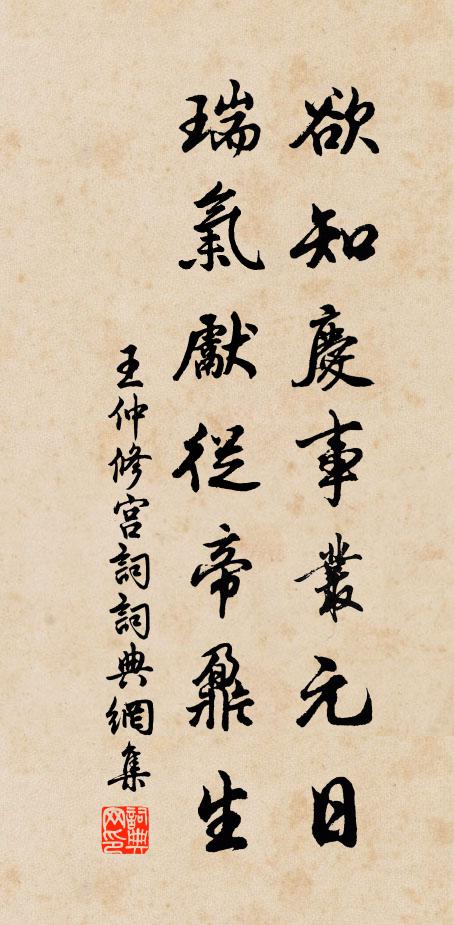 欲知慶事叢元日
瑞氣獻從帝鼐生
王仲修宮詞詞典網集
詞典网印